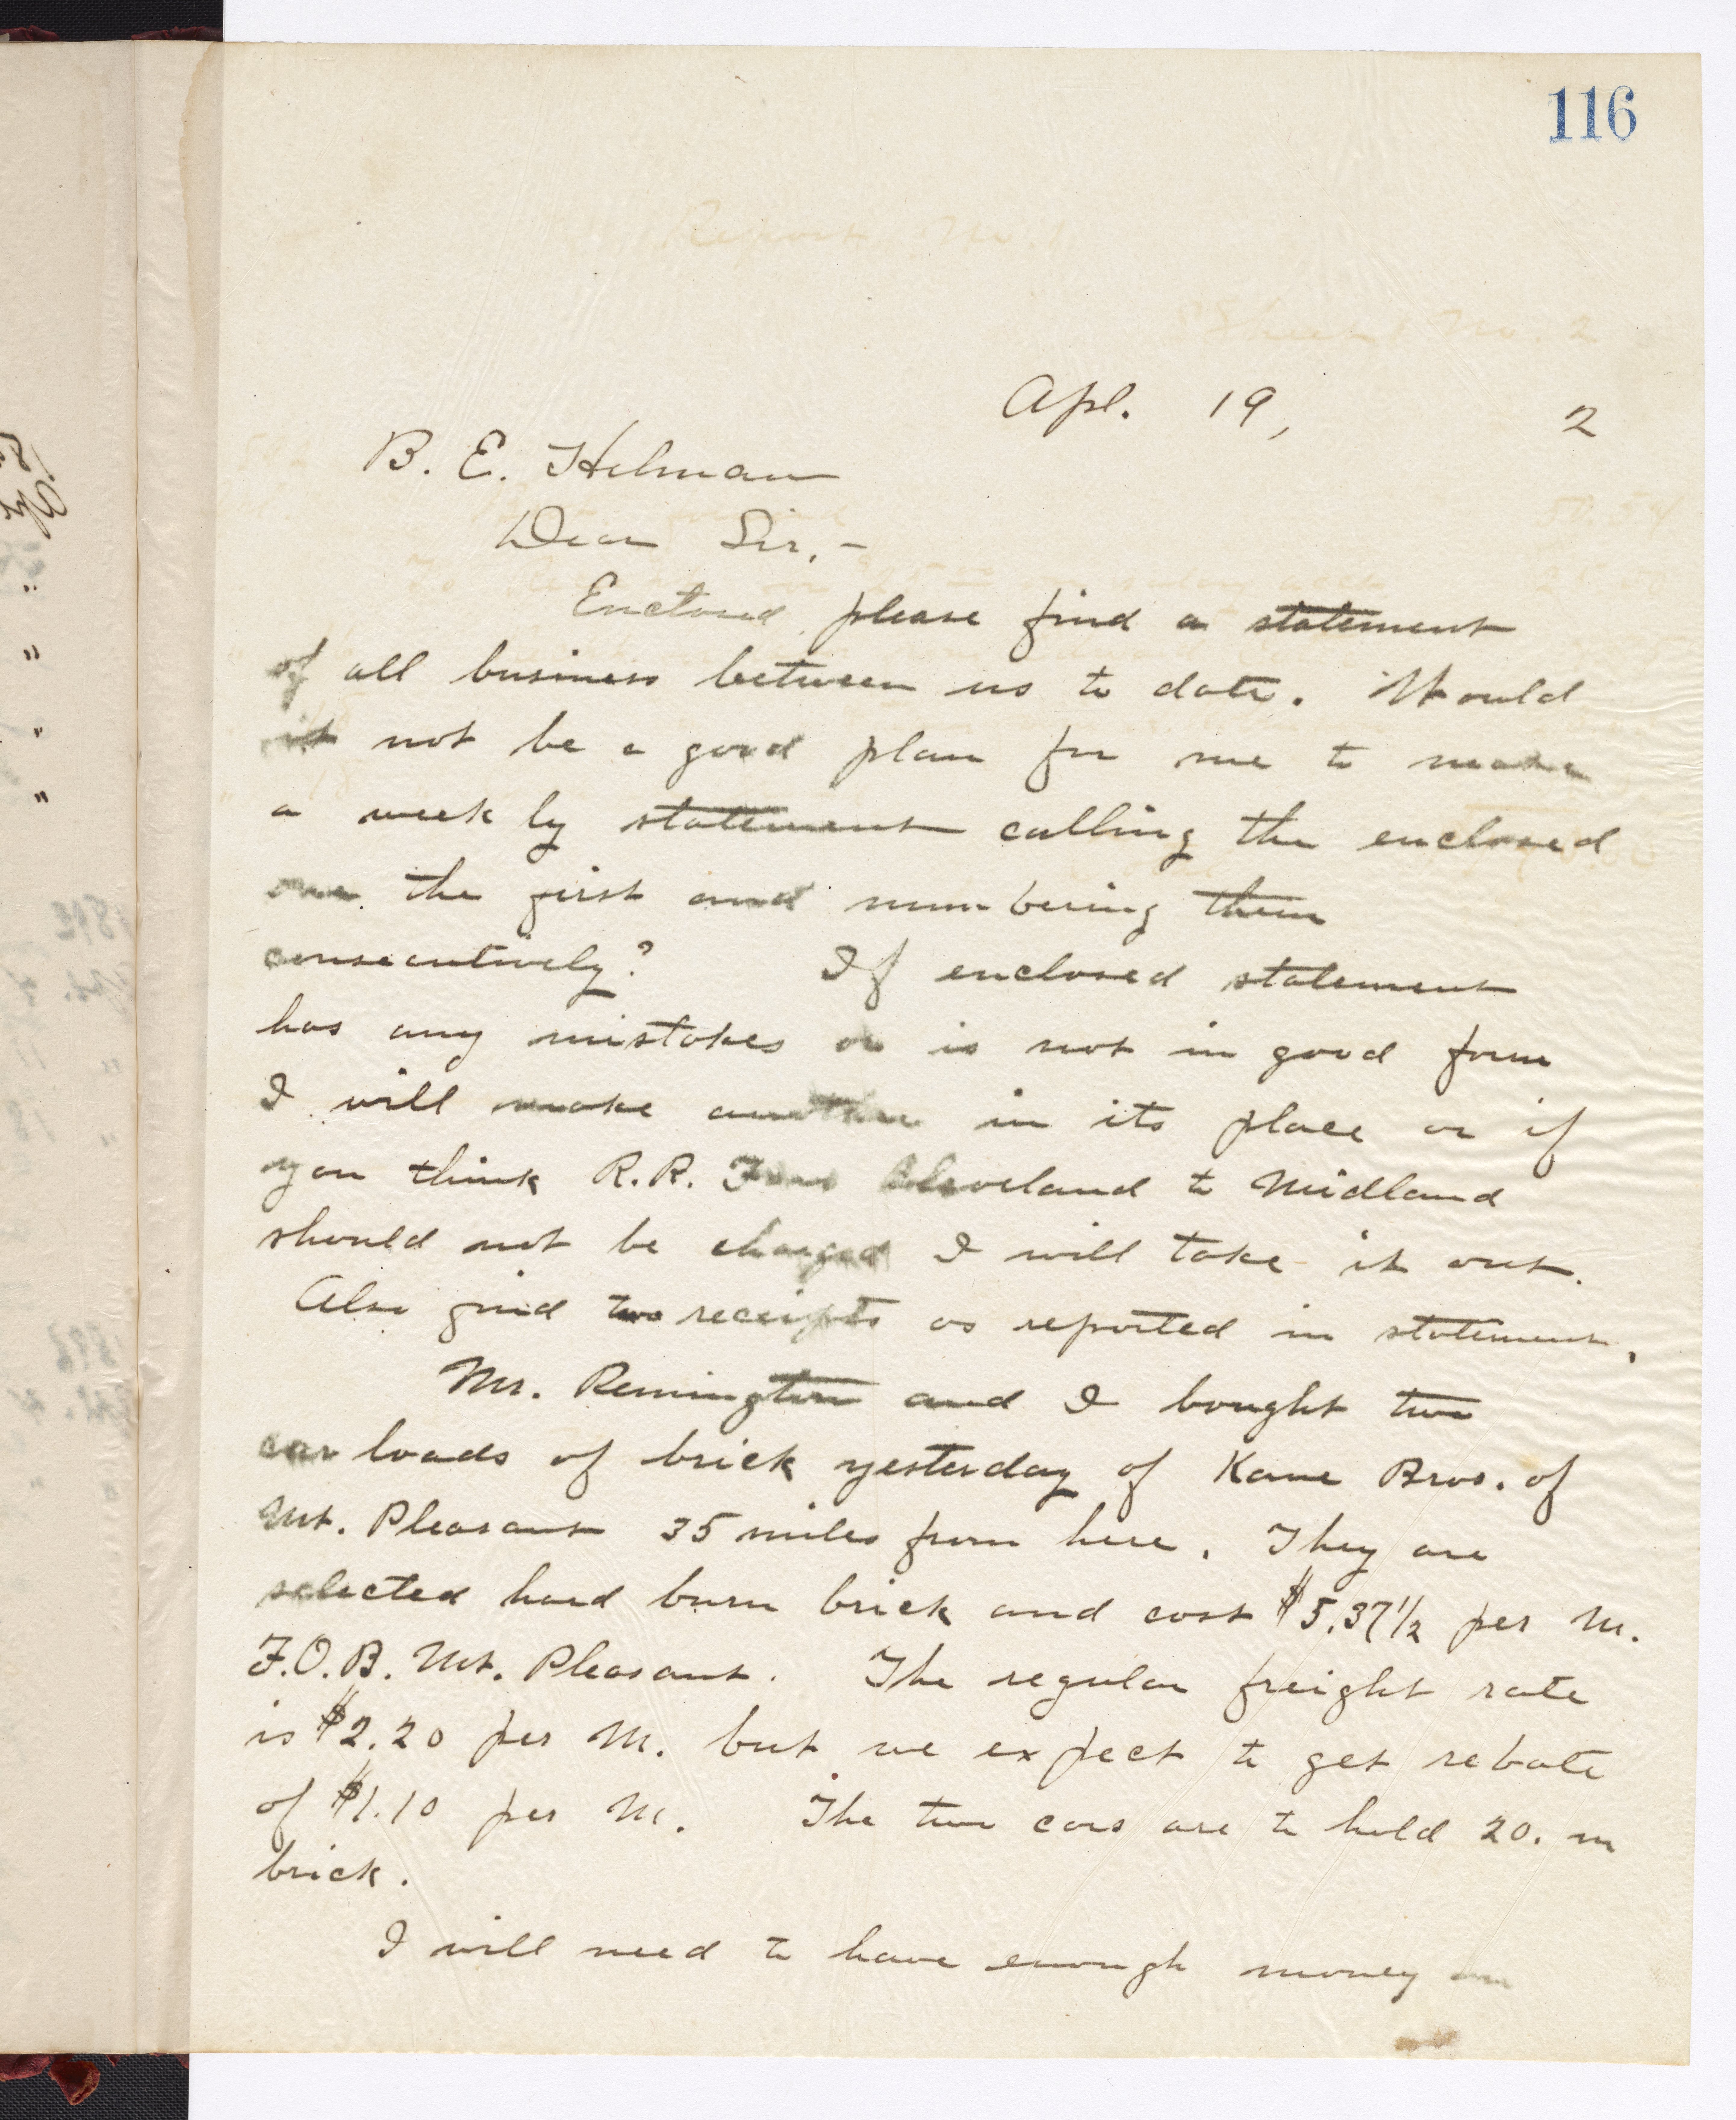 116
Apl. 19, 2
B. E. Helman
Dear Sir,-
Enclosed please find a statement
of all business between us to date. Would
it not be a good plan for me to make
a week ly statement calling the enclosed
one the first and numbering them
consecutively? If enclosed statement
has any mistakes or is not in good form
I will make another in its place or if
you think R.R. Fare Cleveland to Midland
should not be charged I will take it out.
Also find two receipts as reported in statement.
Mr. Remington and I bought two
car loads of brick yesterday of Kane Bros. of
Mt. Pleasant 35 miles from here. They are
selected hard burn brick and cost $5.37 1/2 per M.
F.O.B. Mt. Pleasant. The regular freight rate
is $2.20 per M. but we expect to get rebate
of $1.10 per M. The two cars are to hold 20. m
brick.
I will need to have enough money on